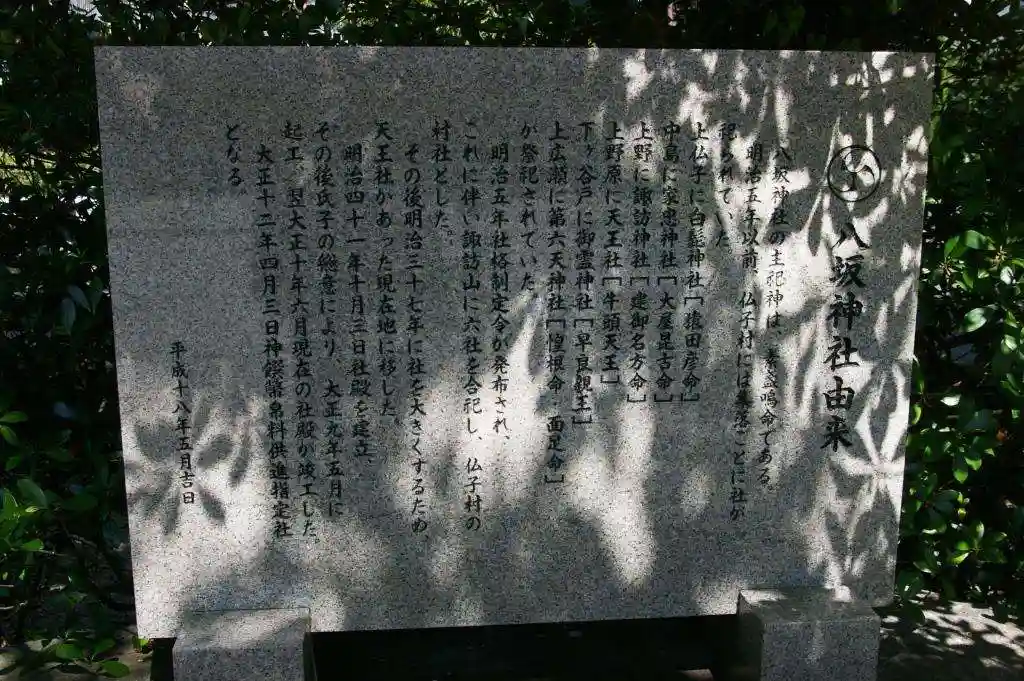 八坂神社由来
八坂神社の主祀神は、素盞嗚命である。
明治五年以前、仏子村には集落ごとに社が
祀られていた。
上仏子に白髭神社[猿田彦命]
中島に家忠神社[大屋昆古命]
上野に諏訪神社[建御名方命]
上野原に天王社[牛頭天王]
下ヶ谷戸に御霊神社[早良親王]
上広瀬に第六天神社[惶根命・面足命]
が祭祀されていた。
明治五年社格制定令が発布され、
これに伴い諏訪山に六社を合祀し、仏子村の
村社とした。
その後明治三十七年に社を大きくするため、
天王社があった現在地に移した。
明治四十一年十月三日社殿を建立、
その後氏子の総意により、大正九年五月に
起工、翌大正十年六月現在の社殿が竣工した。
大正十二年四月三日神饌幣帛料供進指定社
となる。
平成十八年五月吉日